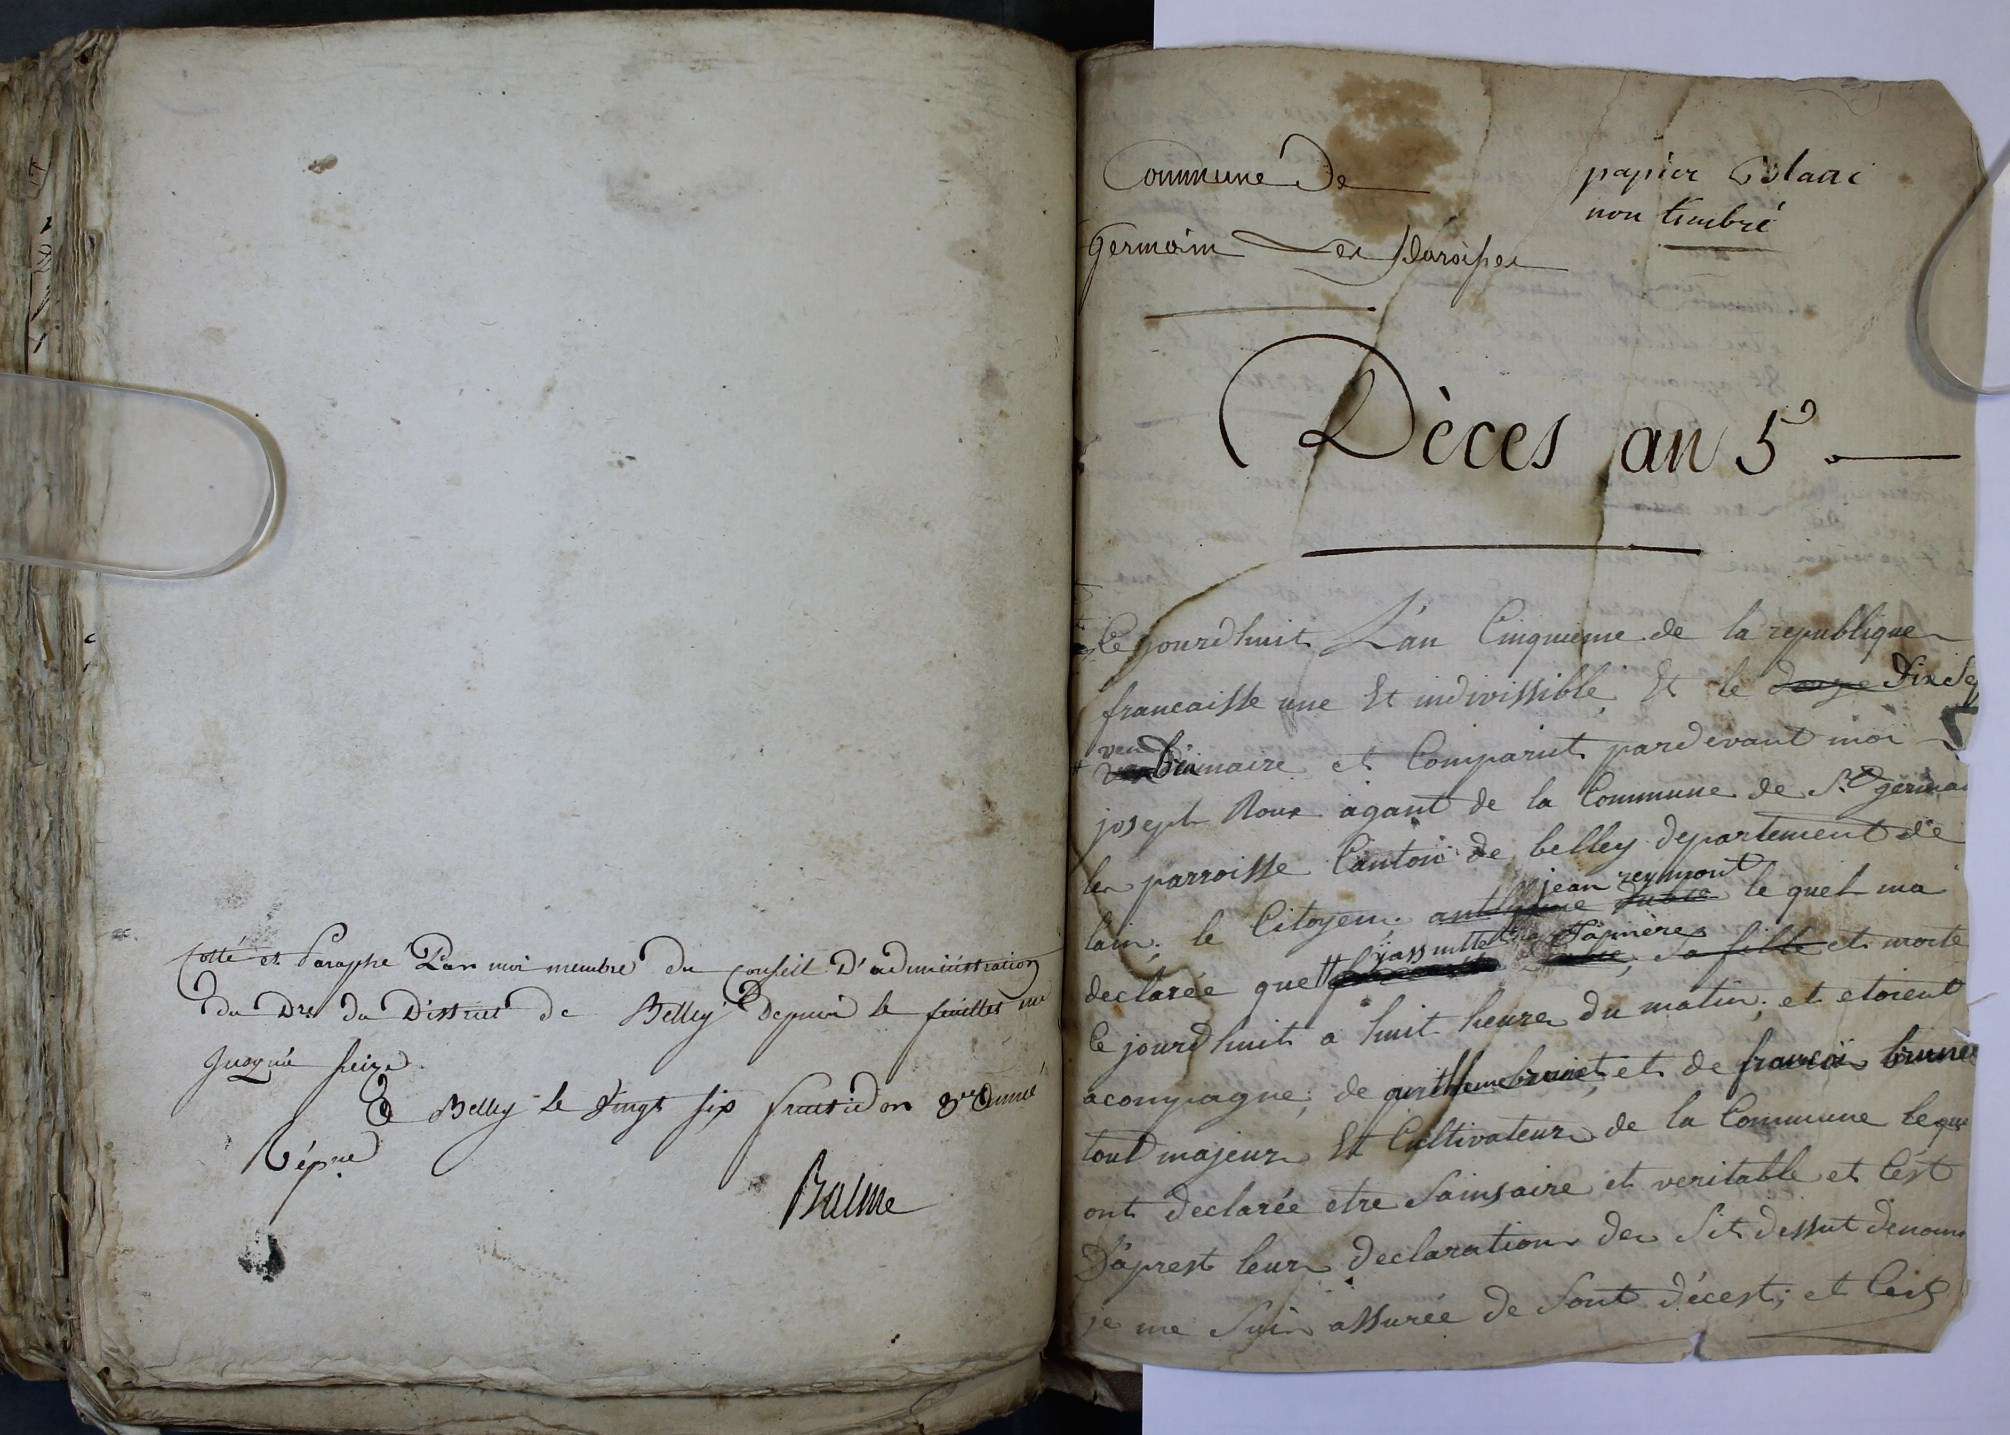 Cotté et Paraphé Par moi membre du Conseil D'administration
du Dre du District de Belley depuis le feuillet un
jusqu'à seize
à Belley le vingt six fructidor 3eme année
Répue
Balme
Commune de
germain les Paroisses
papier blanc
non timbré
Dèces an 5e
Ce jourdhuit L'an Cinquieme de la republique
francaisse une Et indivissible Et le douze Dix Sep
vendimaire et Comparut pardevant moi
joseph Roux agant de la Commune de St germai
les parroisse Canton de belley departement de
jean reymont
lain; le Citoyen le quel ma
declarée que sa fille et morte
Ce jourdhuit a huit heure du matin; et etoient
acompagne; de anthelme brunet et de francois brune
tout majeur Et Cultivateur de la Commune leque
ont declarée etre Sainsaire et veritable et C'est
D'aprest leur declaration de Sit dessut denomm
je me Suis assurée de Sont décest; et Ceist